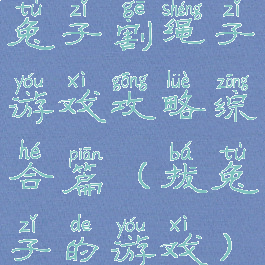 tù zǐ gē shéng zǐ
兔子割绳子
yóu xì gōng lüè zōng
游戏攻略综
hé piān bá tù
合篇(拔兔
zǐ de yóu xì
子的游戏)